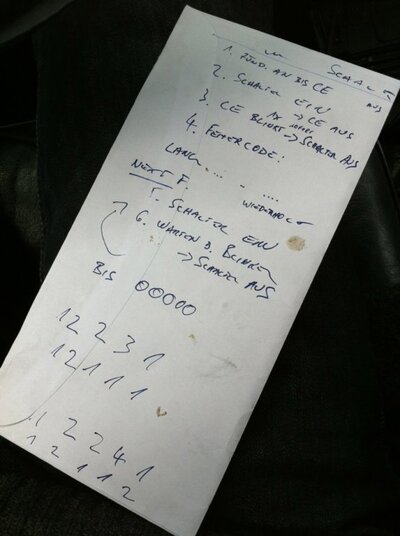 SCHALT
1. ZÜND. AN BIS CE AUS
2. SCHALTER EIN
→ CE AUS
3. CE BLINKT 1x → SCHALTER AUS
4. FEHLERCODE:
LANG ... - ....
WIEDERHOLT
NEXT F.
5. SCHALTER EIN
6. WARTEN B. BLINKEN
→ SCHALTER AUS
BIS 00000
12231
12111
12241
12112